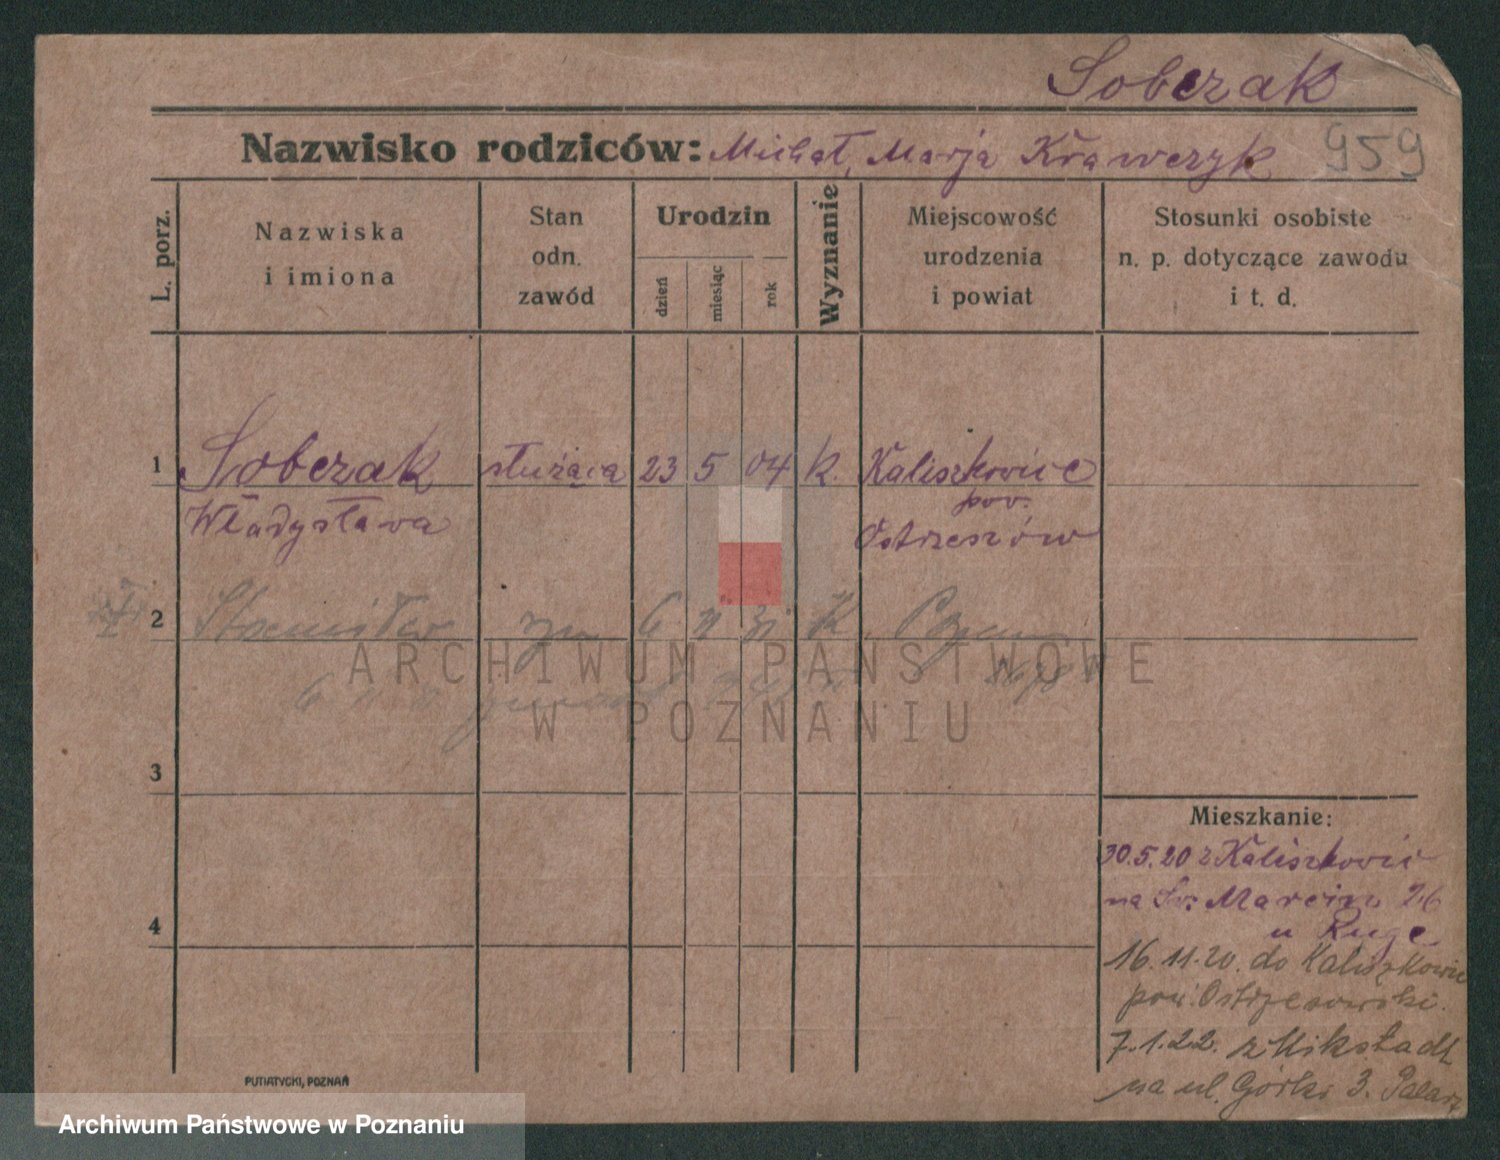 Sobczak
Nazwisko rodziców: Michał, Marja Krawczyk 959
L. porz.
Nazwiska
i imiona
Stan
odn.
zawód
Urodzin
dzień
miesiąc
rok
Wyznanie
Miejscowość
urodzenia
i powiat
Stosunki osobiste
n. p. dotyczące zawodu
i t. d.
1 Sobczak służąca 23 5 04 k. Kaliszkowice
Władysława pow.
Ostrzeszów
2 Stanisław syn 6 K.
ARCHIWUM PAŃSTWOWE
W POZNANIU
3
Mieszkanie:
30.5.20 z Kaliszkowic
na Św. Marcin 26
u Ruge
4
16.11.20. do Kaliszkowic
pow. Ostrzeszowski.
7.1.22. z Mikstadt
na ul. Górki 3.
PUTIATYCKI, POZNAŃ
Archiwum Państwowe w Poznaniu